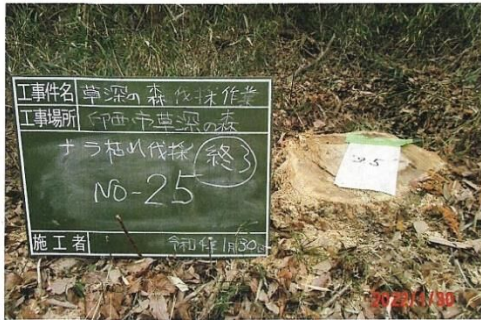 工事件名 草深の森伐採作業
工事場所 印西市草深の森
ナラ枯れ伐採 終了
NO-25
施工者 令和 年1月30日
25